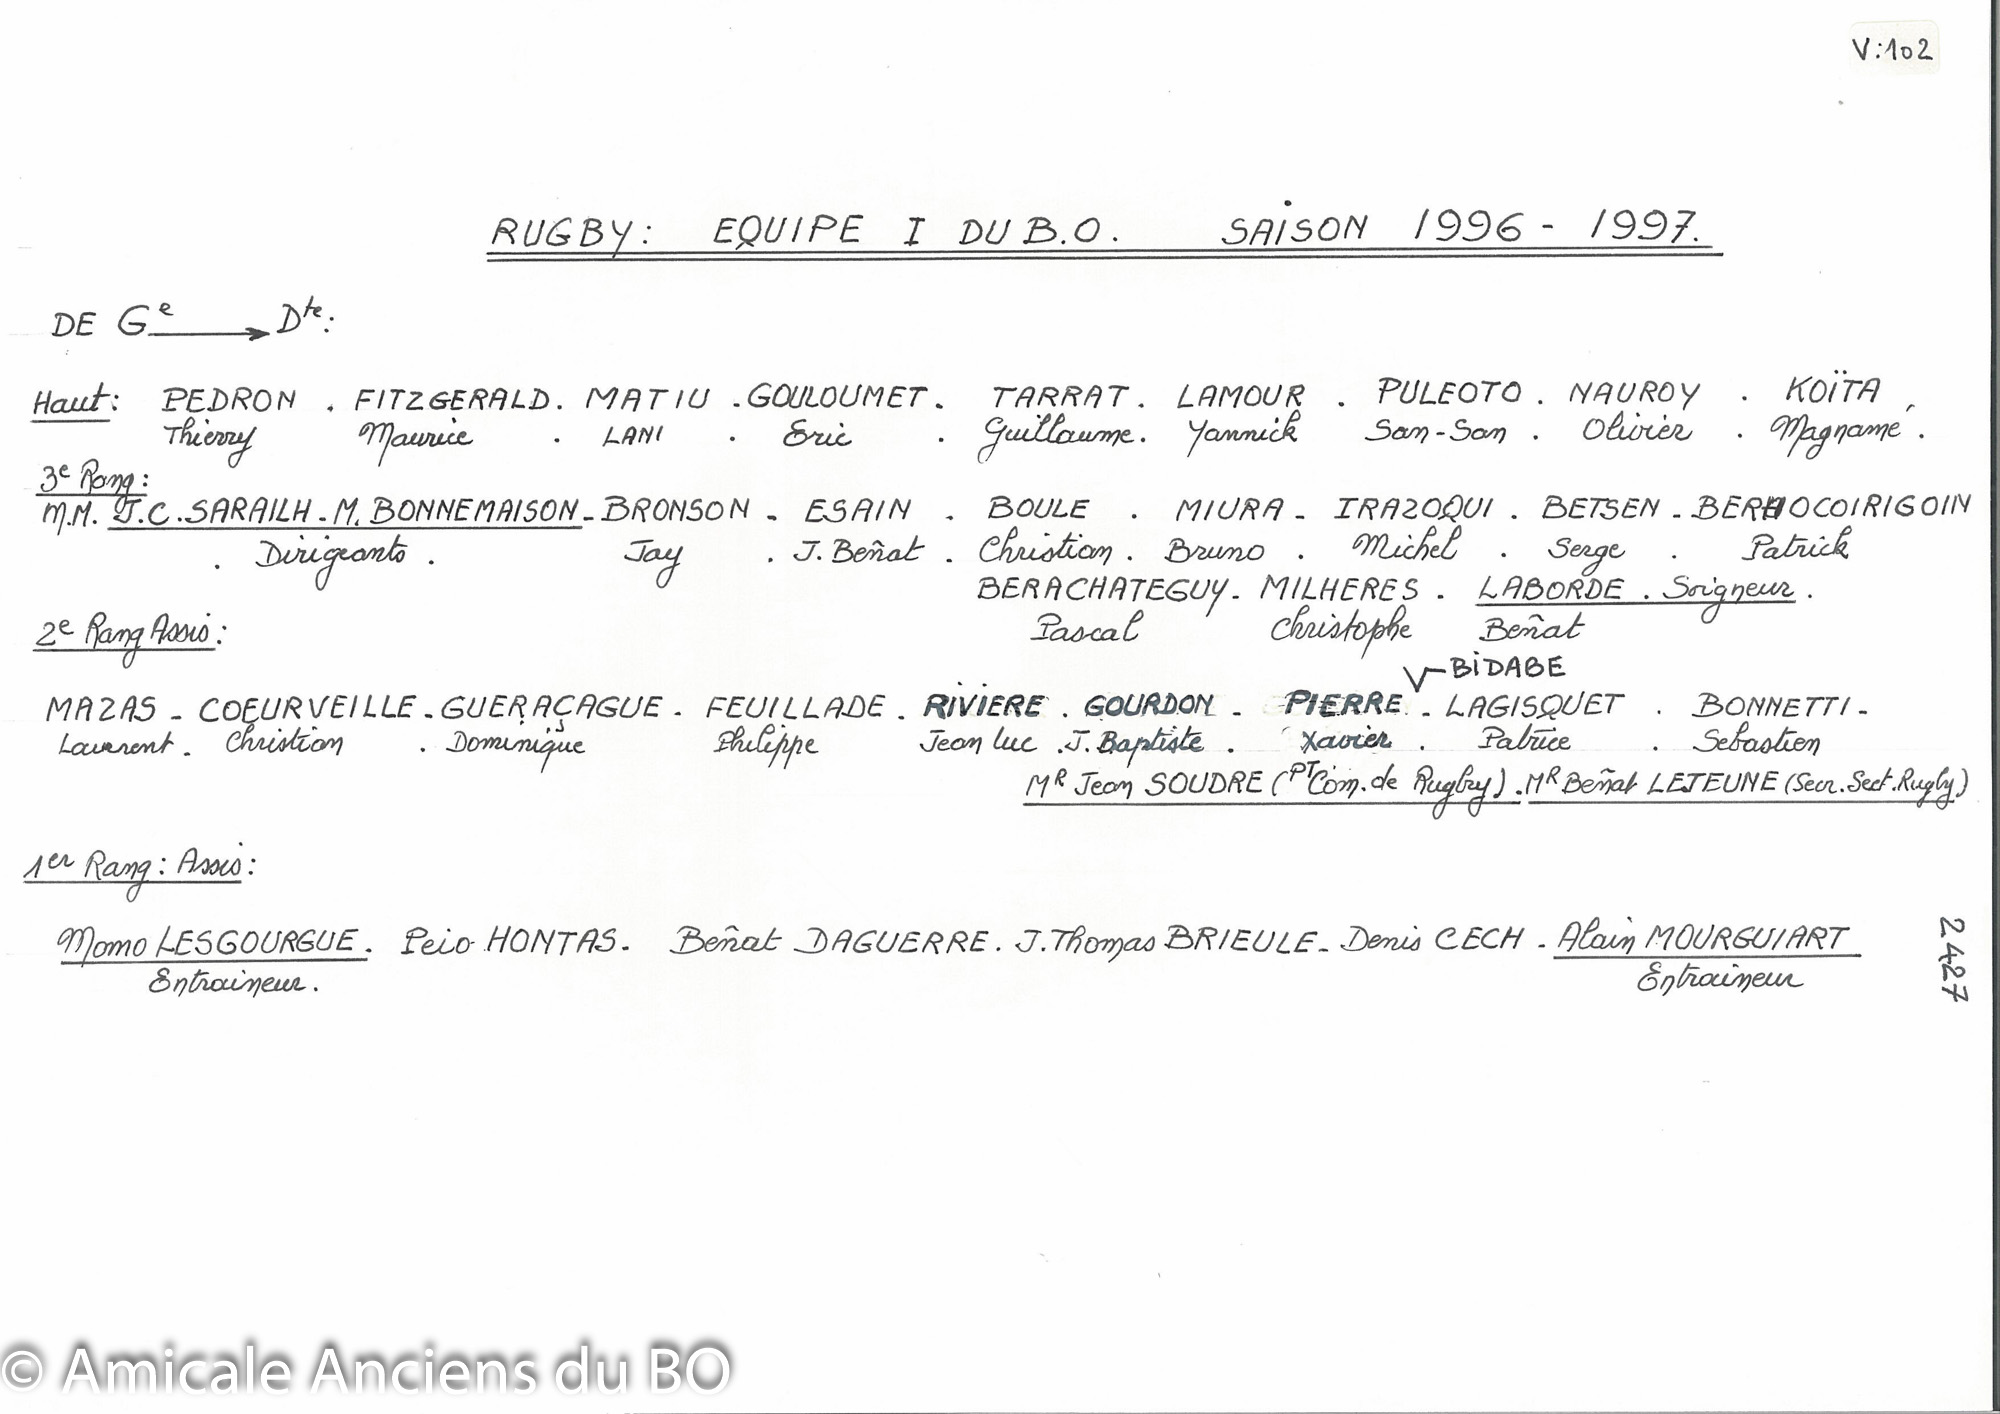 V:102
RUGBY: EQUIPE I DU B.O. SAISON 1996 - 1997.
DE Ge → Dte:
Haut: PEDRON . FITZGERALD. MATIU . GOULOUMET. TARRAT. LAMOUR . PULEOTO . NAUROY . KOÏTA
Thierry Maurice . LANI . Eric . Guillaume. Yannick San-San . Olivier . Magname .
3e Rang:
M.M. J.C. SARAILH - M. BONNEMAISON - BRONSON - ESAIN . BOULE . MIURA - IRAZOQUI . BETSEN - BERHOCOIRIGOIN
. Dirigeants . Jay . J. Beñat . Christian . Bruno . Michel . Serge . Patrick
BERACHATEGUY - MILHERES . LABORDE . Soigneur .
2e Rang Assis: Pascal Christophe Beñat
BiDABE
MAZAS - COEURVEILLE - GUERAÇAGUE - FEUILLADE . RIVIERE . GOURDON - PIERRE - LAGISQUET . BONNETTI -
Laurent . Christian . Dominique Philippe Jean Luc . J. Baptiste . Xavier . Patrice . Sebastien
MR Jean SOUDRE (PT Com. de Rugby) . MR Beñat LEJEUNE (Secr. Sect. Rugby)
1er Rang: Assis:
Momo LESGOURGUE . Peio HONTAS - Beñat DAGUERRE . J. Thomas BRIEULE - Denis CECH . Alain MOURGUIART
Entraineur . Entraineur
2427
© Amicale Anciens du BO